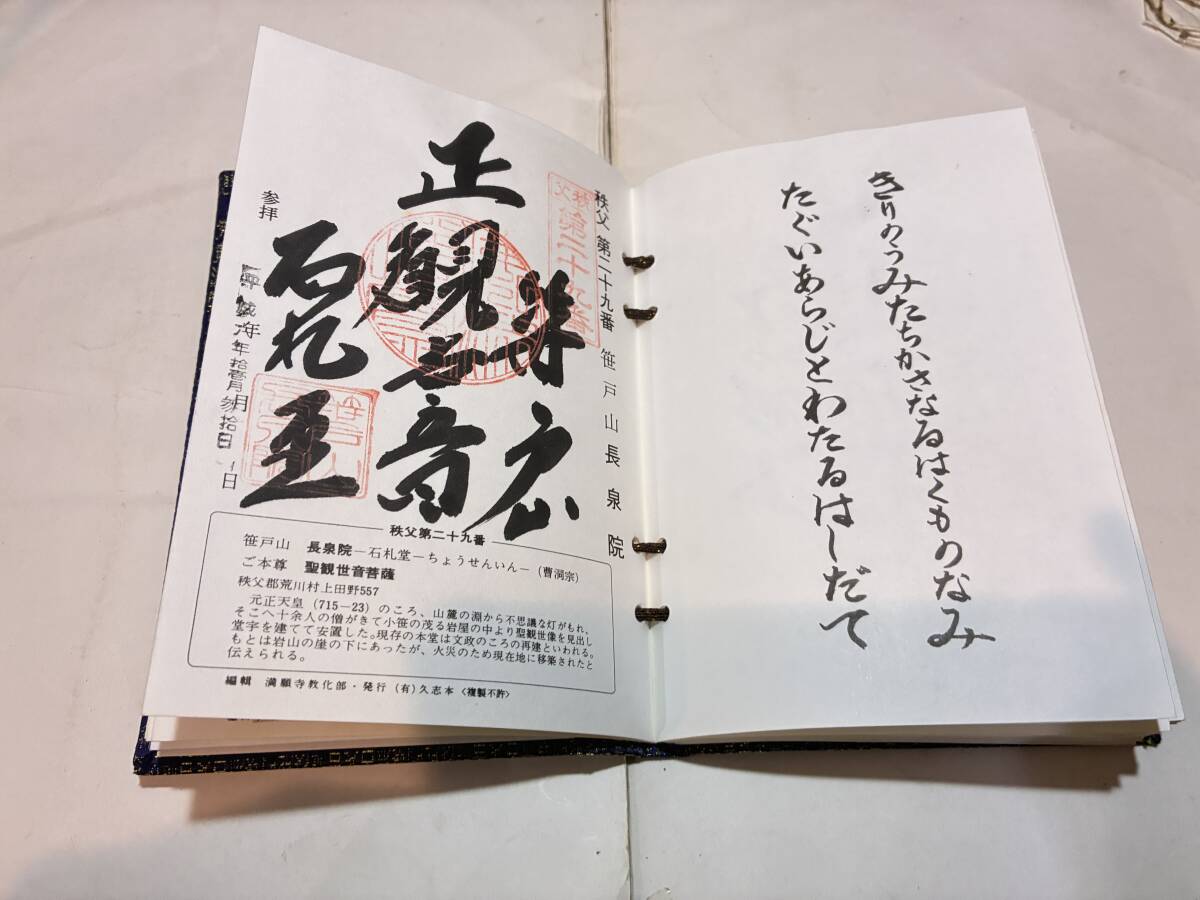 きりのうみたちかさなるはくものなみ
たぐいあらじとわたるはしだて
秩父 第二十九番 笹戸山長泉院
秩父
第二十九番
笹戸山
正観世音
石札堂
参拝
年拾壱月
日
秩父第二十九番
笹戸山 長泉院―石札堂―ちょうせんいん―(曹洞宗)
ご本尊 聖観世音菩薩
秩父郡荒川村上田野557
元正天皇(715―23)のころ、山麓の淵から不思議な灯がもれ、
そこへ十余人の僧がきて小笹の茂る岩屋の中より聖観世像を見出し
堂宇を建てて安置した。現存の本堂は文政のころの再建といわれる。
もとは岩山の崖の下にあったが、火災のため現在地に移築されたと
伝えられる。
編輯 満願寺教化部・発行(有)久志本〈複製不許〉